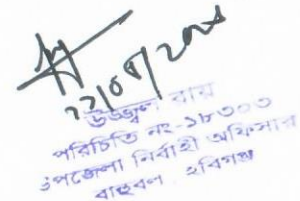 ২২/০৪/২০২৪
উজ্জ্বল রায়
পরিচিতি নং-১৮৩০৩
উপজেলা নির্বাহী অফিসার
বাহুবল, হবিগঞ্জ